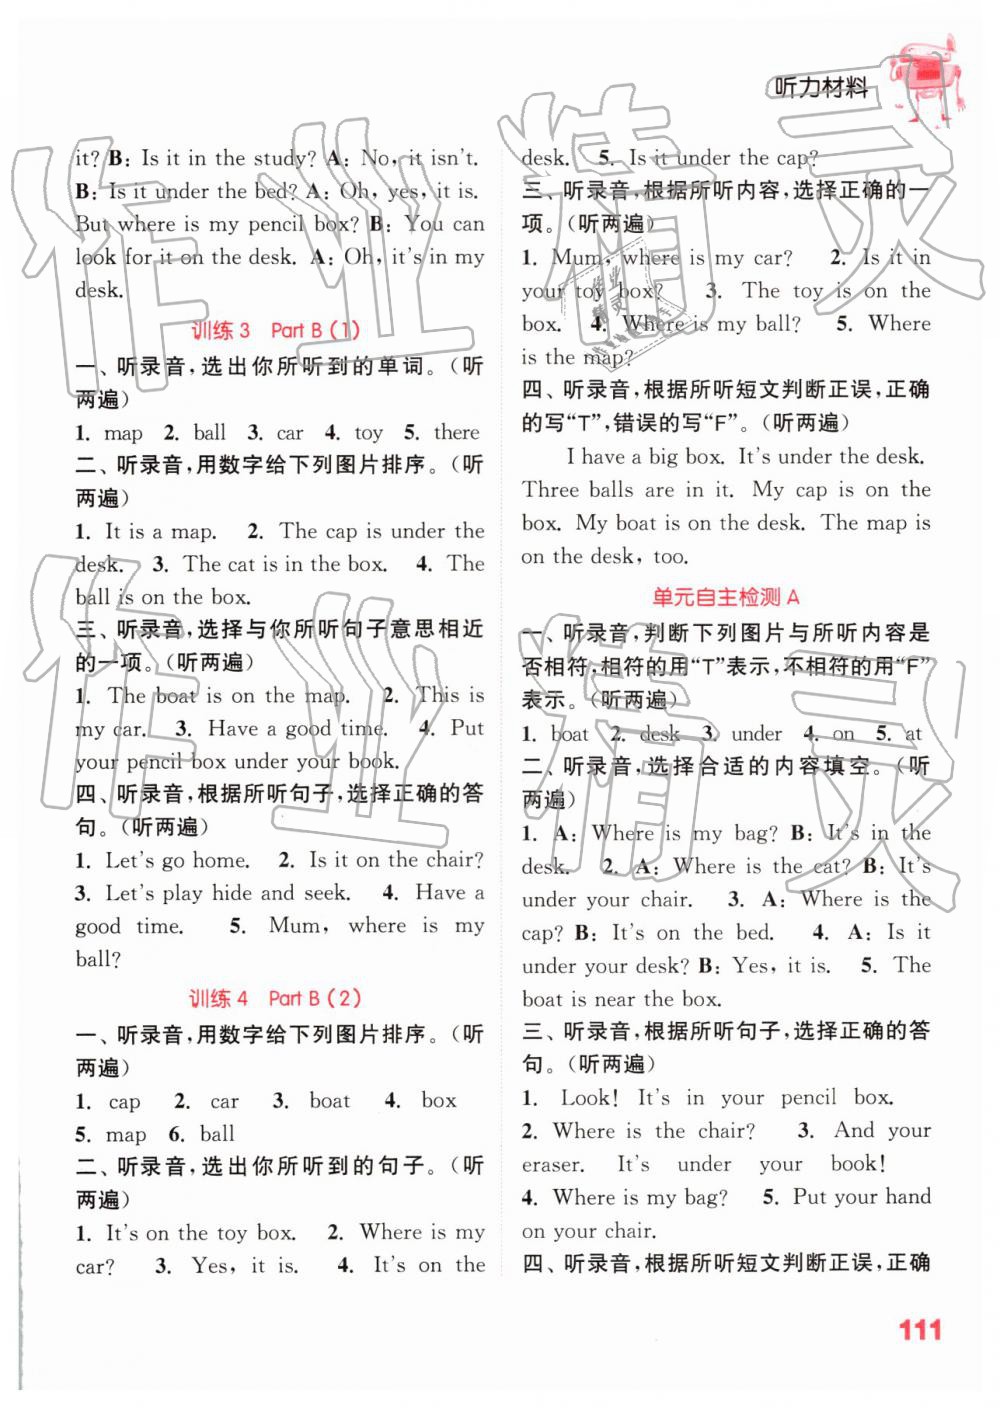 听力材料
it? B: Is it in the study? A: No, it isn't.
B: Is it under the bed? A: Oh, yes, it is.
But where is my pencil box? B: You can
look for it on the desk. A: Oh, it's in my
desk.
训练3 Part B (1)
一、听录音,选出你所听到的单词。(听
两遍)
1. map 2. ball 3. car 4. toy 5. there
二、听录音,用数字给下列图片排序。(听
两遍)
1. It is a map. 2. The cap is under the
desk. 3. The cat is in the box. 4. The
ball is on the box.
三、听录音,选择与你所听句子意思相近
的一项。(听两遍)
1. The boat is on the map. 2. This is
my car. 3. Have a good time. 4. Put
your pencil box under your book.
四、听录音,根据所听句子,选择正确的答
句。(听两遍)
1. Let's go home. 2. Is it on the chair?
3. Let's play hide and seek. 4. Have a
good time. 5. Mum, where is my
ball?
训练4 Part B (2)
一、听录音,用数字给下列图片排序。(听
两遍)
1. cap 2. car 3. boat 4. box
5. map 6. ball
二、听录音,选出你所听到的句子。(听
两遍)
1. It's on the toy box. 2. Where is my
car? 3. Yes, it is. 4. It's on the
desk. 5. Is it under the cap?
三、听录音,根据所听内容,选择正确的一
项。(听两遍)
1. Mum, where is my car? 2. Is it in
your toy box? 3. The toy is on the
box. 4. Where is my ball? 5. Where
is the map?
四、听录音,根据所听短文判断正误,正确
的写“T”,错误的写“F”。(听两遍)
I have a big box. It's under the desk.
Three balls are in it. My cap is on the
box. My boat is on the desk. The map is
on the desk, too.
单元自主检测A
一、听录音,判断下列图片与所听内容是
否相符,相符的用“T”表示,不相符的用“F”
表示。(听两遍)
1. boat 2. desk 3. under 4. on 5. at
二、听录音,选择合适的内容填空。(听
两遍)
1. A: Where is my bag? B: It's in the
desk. 2. A: Where is the cat? B: It's
under your chair. 3. A: Where is the
cap? B: It's on the bed. 4. A: Is it
under your desk? B: Yes, it is. 5. The
boat is near the box.
三、听录音,根据所听句子,选择正确的答
句。(听两遍)
1. Look! It's in your pencil box.
2. Where is the chair? 3. And your
eraser. It's under your book!
4. Where is my bag? 5. Put your hand
on your chair.
四、听录音,根据所听短文判断正误,正确
111
作业精灵
作业精灵
作业精灵